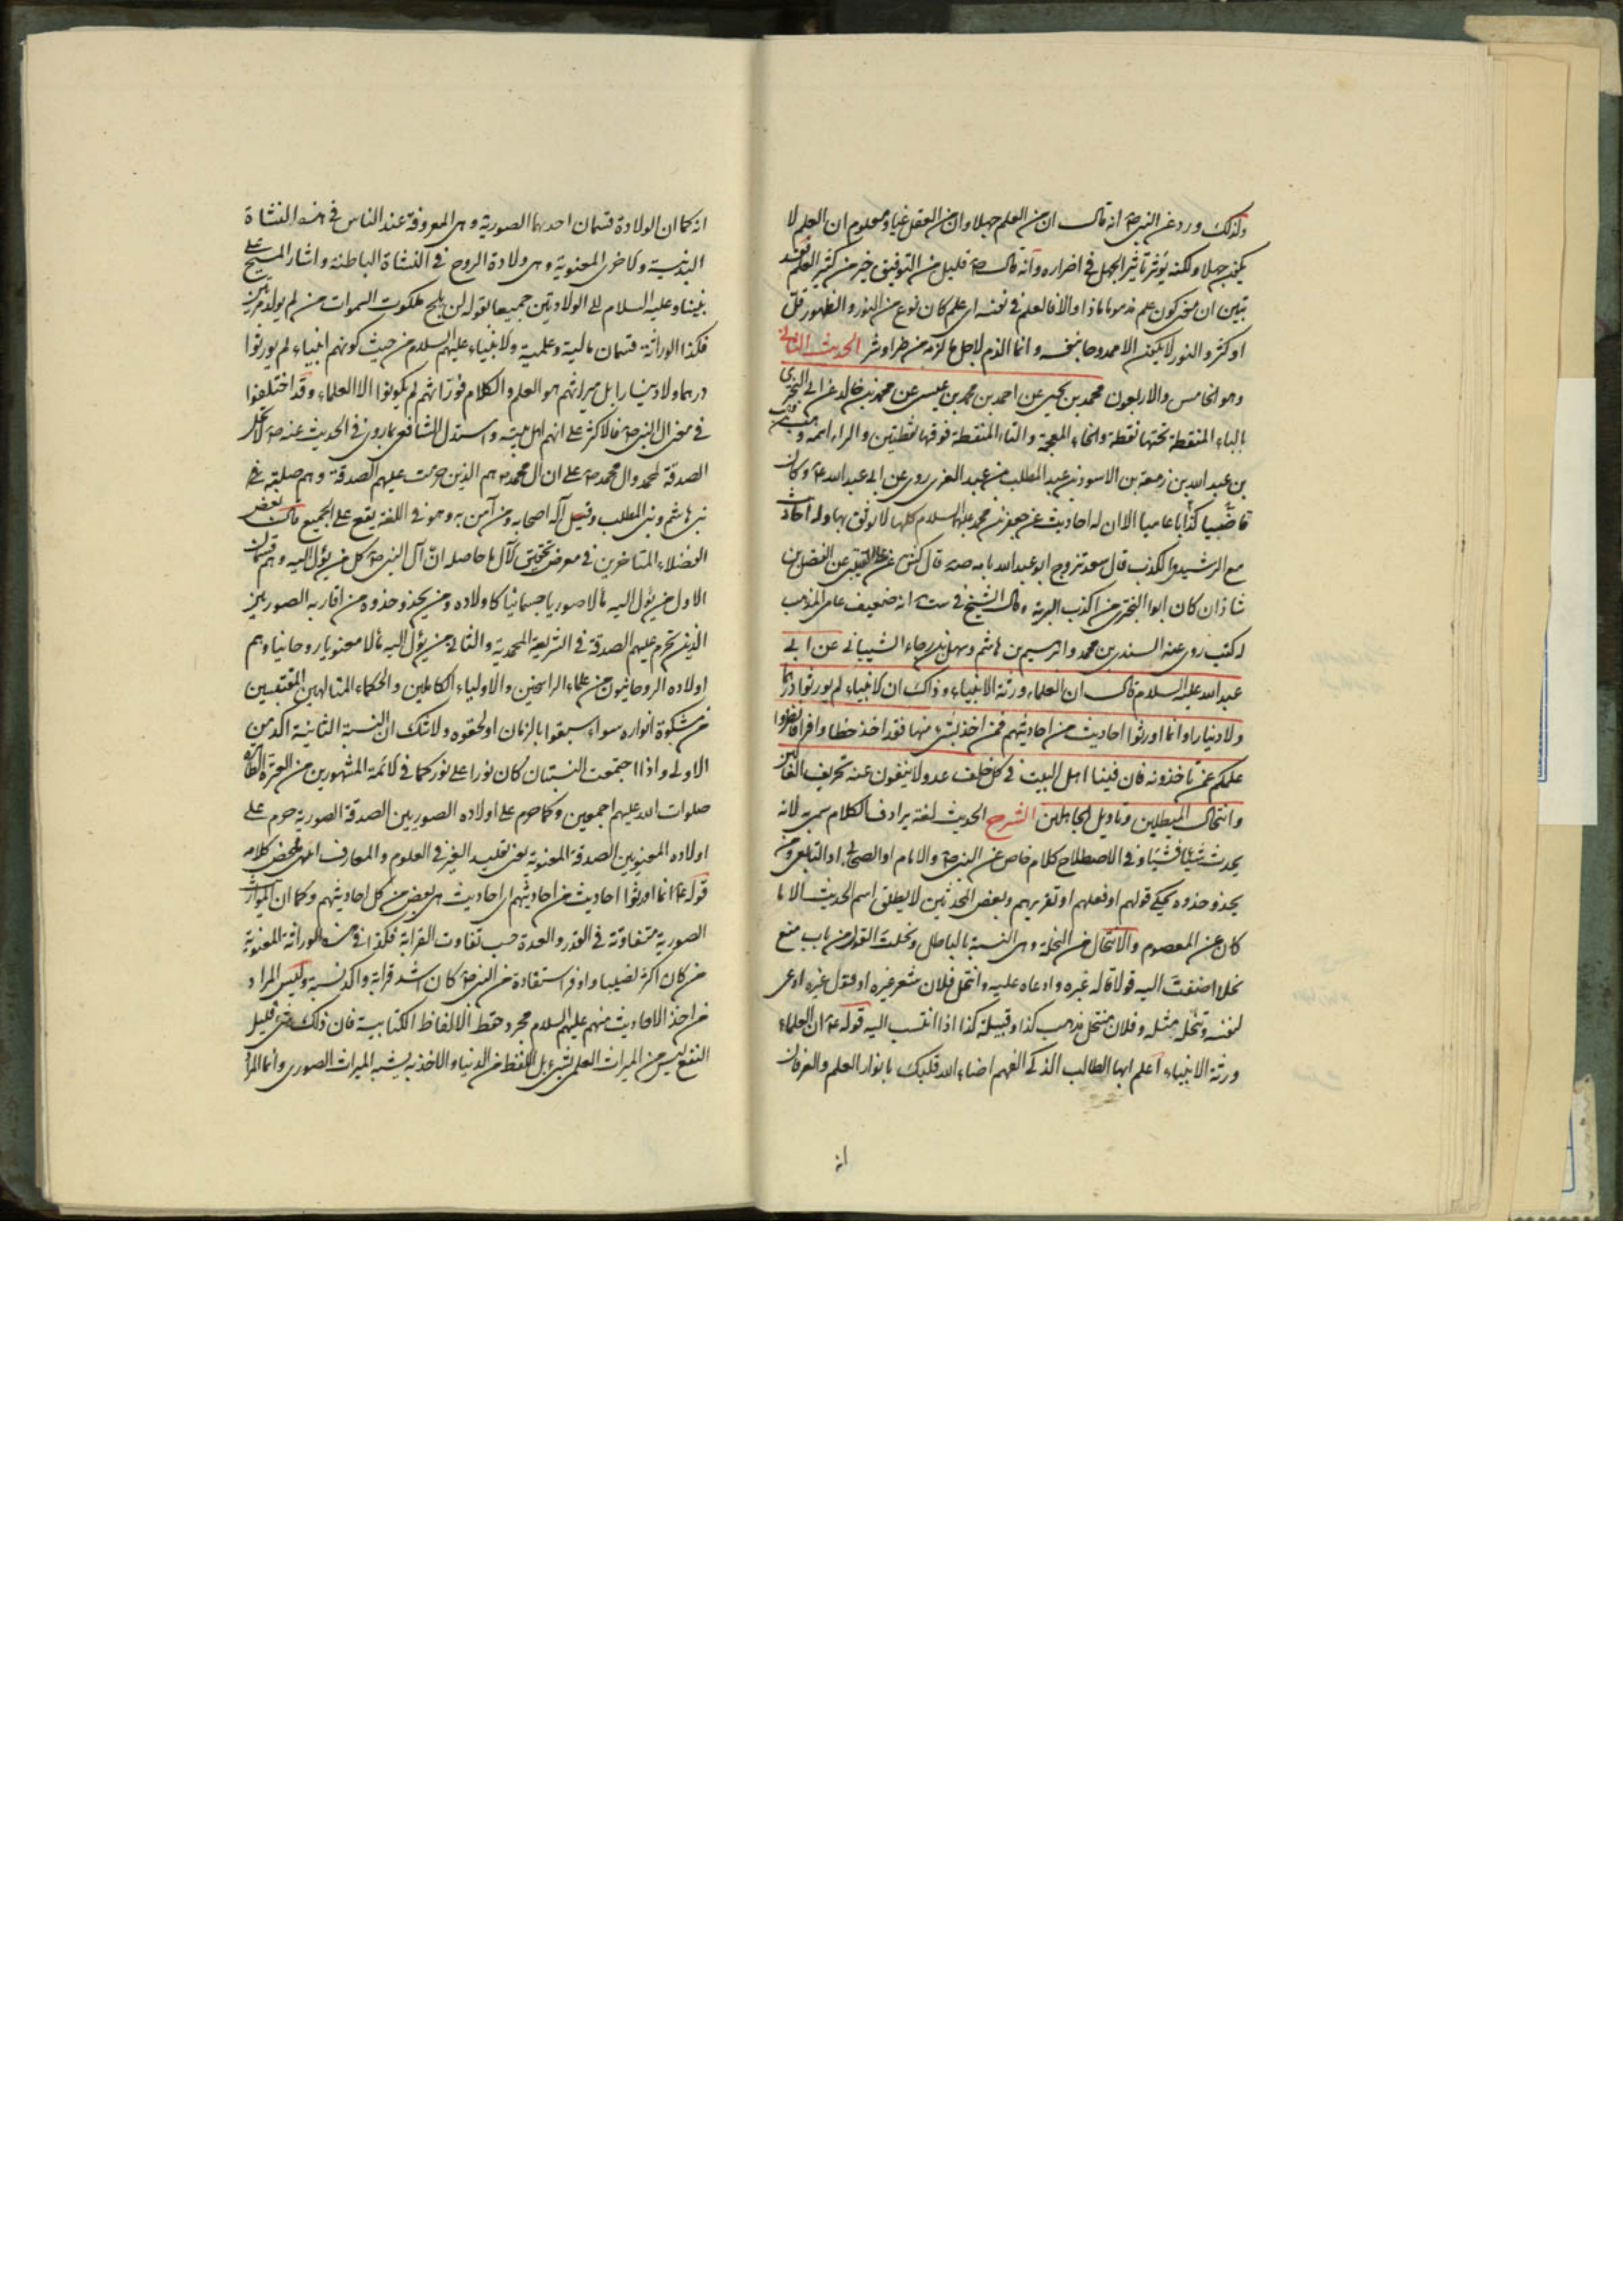 ولذلك ورد عن النبي ص انه قال ان من العلم جهلا وان من العقل غيا ومعلوم ان العلم لا
يكون جهلا ولكنه يؤثر تأثير الجهل في اضراره وانه قال ص قليل من التوفيق خير من كثير العلم فقد
تبين ان معنى كون علم مذموما ماذا والا فالعلم في نفسه اى علم كان نوع من النور والظهور قل
او كثر والنور لا يكون الا ممدوحا بنفسه وانما الذم لاجل ما لزمه من طراوشر الحديث الثاني
وهو الخامس والاربعون محمد بن يحيى عن احمد بن محمد بن عيسى عن محمد بن خالد عن ابى البخترى
بالباء المنقطة تحتها نقطة والخاء المعجمة والتاء المنقطة فوقها نقطتين والراء اسمه وهب بن وهب
بن عبد الله بن زمعة بن الاسود بن عبد المطلب بن عبد العزى روى عن ابى عبد الله ع وكان
قاضيا كذابا عاميا الا ان له احاديث عن جعفر بن محمد عليه السلام كلها لا يوثق بها وله احاديث
مع الرشيد في الكذب قال سعد تزوج ابو عبد الله بامه صه قال كش عن القتيبى عن الفضل بن
شاذان كان ابو البخترى من اكذب البرية وقال الشيخ في ست انه ضعيف عامى المذهب
له كتب روى عنه السندى بن محمد وابرهيم بن هاشم وسهل بن رجاء الشيبانى عن ابى
عبد الله عليه السلام قال ان العلماء ورثة الانبياء وذاك ان الانبياء لم يورثوا درهما
ولا دينارا وانما اورثوا احاديث من احاديثهم فمن اخذ بشئ منها فقد اخذ حظا وافرا فانظروا
علمكم عمن تأخذونه فان فينا اهل البيت في كل خلف عدولا ينفون عنه تحريف الغالين
وانتحال المبطلين وتأويل الجاهلين الشرح الحديث لغة يرادف الكلام سمى به لانه
يحدث شيئا فشيئا وفي الاصطلاح كلام خاص عن النبي ص والامام او الصحابى او التابعى ومن
يحذو حذوه يحكى قولهم او فعلهم او تقريرهم وبعض المحدثين لا يطلق اسم الحديث الا ما
كان عن المعصوم والانتحال من النحلة وهى النسبة بالباطل ونحلت القول من باب منع
نحلا اضفت اليه قولا قاله غيره وادعاه عليه وانتحل فلان شعر غيره او قول غيره ادعى
لنفسه وتنحله مثله وفلان منتحل مذهب كذا وقبيلة كذا اذا انتسب اليه قوله ع ان العلماء
ورثة الانبياء اعلم ايها الطالب الذكى الفهم اضاء الله قلبك بانوار العلم والعرفان
انه
انه كما ان الولادة قسمان احديهما الصورية وهى المعروفة عند الناس في هذه النشاة
البدنية والاخرى المعنوية وهى ولادة الروح في النشاة الباطنة واشار المسيح على
نبينا وعليه السلام الى الولادتين جميعا بقوله لن يلج ملكوت السموات من لم يولد مرتين
فكذا الوراثة قسمان مالية وعلمية والانبياء عليهم السلام من حيث كونهم انبياء لم يورثوا
درهما ولا دينارا بل ميراثهم هو العلم والكلام فوراثهم لم يكونوا الا العلماء وقد اختلفوا
في معنى ال النبي ص فالاكثر على انهم اهل بيته واستدل الشافعى بما روى في الحديث عنه ص لا تحل
الصدقة لمحمد وال محمد ص على ان ال محمد ص هم الذين حرمت عليهم الصدقة وهم صليبة
بنى هاشم وبنى المطلب وقيل آله اصحابه ومن آمن به وهو في اللغة يقع على الجميع قال بعض
الفضلاء المتاخرين في معرض تحقيق الآل ما حاصله انّ آل النبي ص كل من يؤل اليه وهم قسمان
الاول من يؤل اليه مآلا صوريا جسمانيا كاولاده ومن يحذو حذوه من اقاربه الصوريين
الذين تحرم عليهم الصدقة في الشريعة المحمدية والثانى من يؤل اليه مآلا معنويا روحانيا وهم
اولاده الروحانيون من علماء الراسخين والاولياء الكاملين والحكماء المتالهين المقتبسين
من مشكوة انواره سواء سبقوا بالزمان او لحقوه ولا شك ان النسبة الثانية اكد من
الاولى واذا اجتمعت النسبتان كان نورا على نور كما في الائمة المشهورين من العترة الطاهرة
صلوات الله عليهم اجمعين وكما حرم على اولاده الصوريين الصدقة الصورية حرم على
اولاده المعنويين الصدقة المعنوية يعنى تقليد الغير في العلوم والمعارف انتهى ملخص كلامه
قوله ع انما اورثوا احاديث من احاديثهم اى احاديث هى بعض من كل احاديثهم وكما ان المواريث
الصورية متفاوتة في القدر والعدة حسب تفاوت القرابة فكذا في هذه الوراثة المعنوية
من كان اكثر نصيبا واوفر استفادة من النبي ص كان اشد قرابة واكد نسبة وليس المراد
من اخذ الاحاديث منهم عليهم السلام مجرد حفظ الالفاظ الكتابية فان ذلك شئ قليل
النفع ليس من الميراث العلمى بشئ بل اللفظ من الدنيا والاخذ به يشبه الميراث الصورى وانما المراد